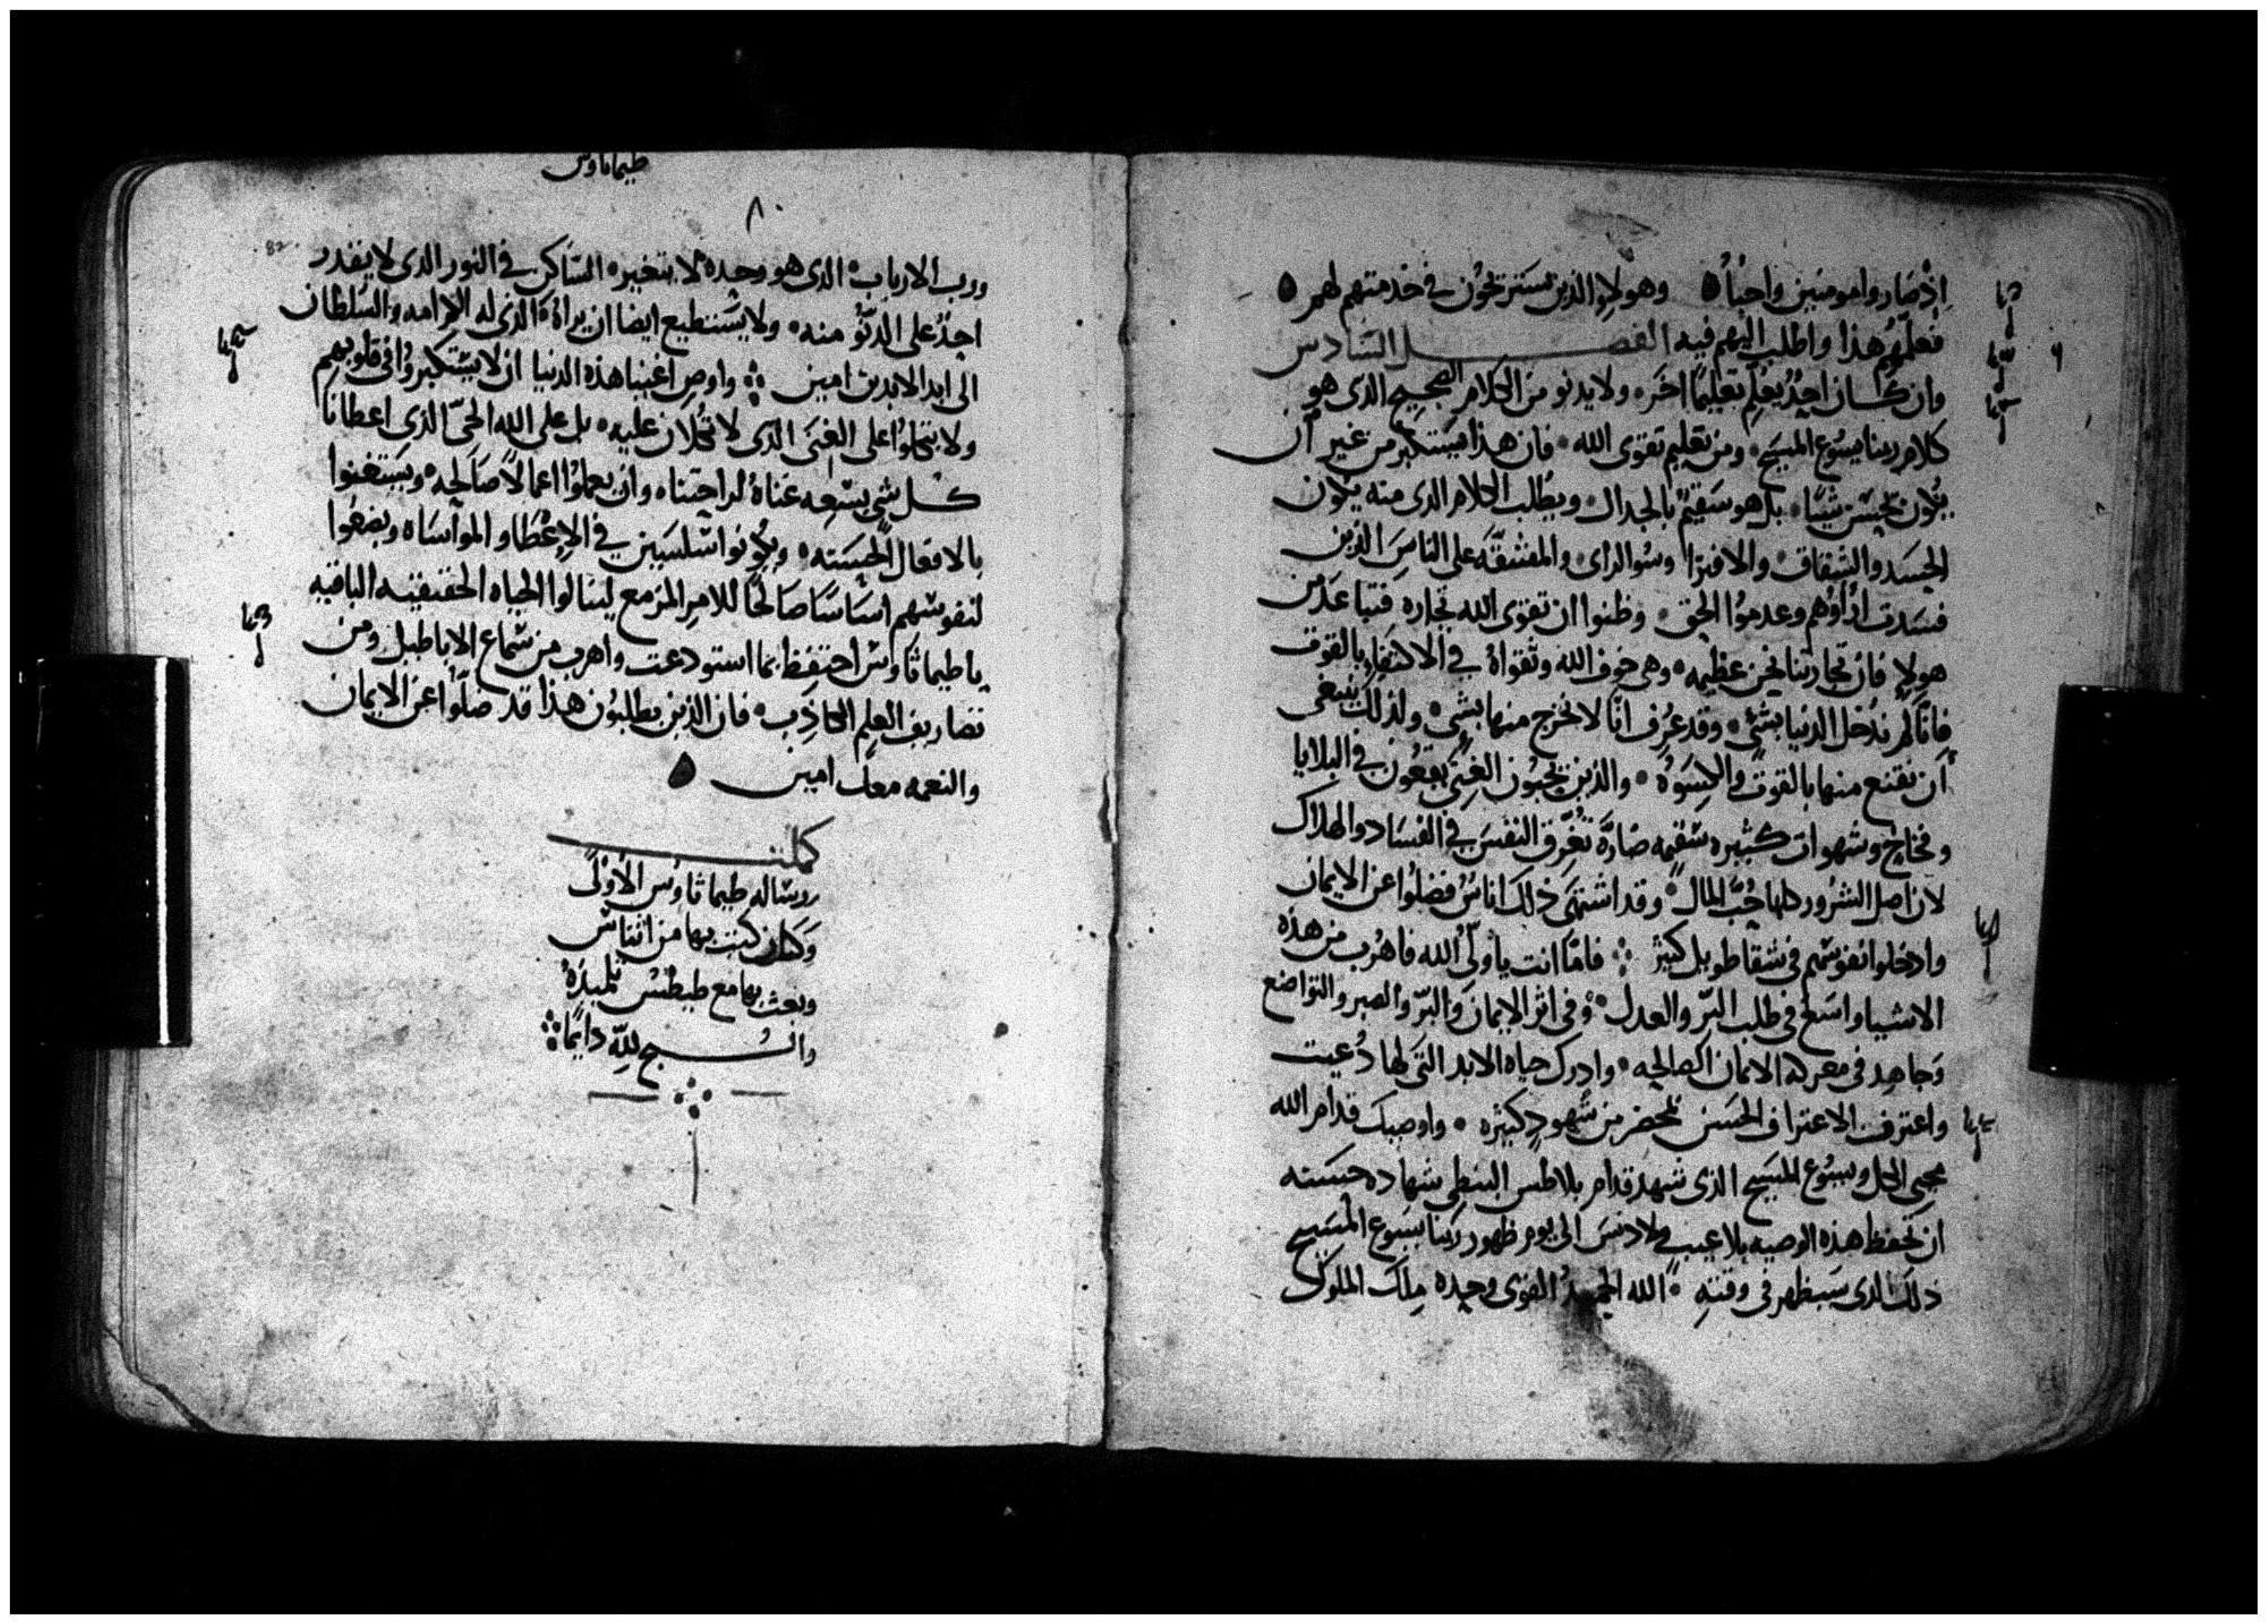 اذ صاروا مومنين واحبّاءُ وهولاءِ الذين يستريحون في خدمتهم لهم
فعلمهم هذا واطلب اليهم فيه الفصل السادس
وان كان احدٌ يعلم تعليمًا اخر ولا يدنو من الكلام الصحيح الذى هو
كلام ربنا يسوع المسيح ومن تعليم تقوى الله فان هذا يستكبر من غير ان
يكون يحسن شيئًا بل هو سقيم بالجدال ويطلب الكلام الذى منه يكون
الحسد والشقاق والافترا وسو الراى والمشقه على الناس الذين
فسدت اراوهم وعدموا الحق وظنوا ان تقوى الله تجاره فتباعد من
هولا فان تجارتنا نحن عظيمه وهى خوف الله وتقواهُ في الاكتفاء بالقوت
فانّا لم ندخل الدنيا بشئ وقد عرف انا لا نخرج منها بشى ولذلك ينبغى
أن نقنع منها بالقوت والكسوه والذين يحبون الغنى يقعون في البلايا
وفخاخ وشهوات كثيره سقيمه ضارّة تغرق النفس في الفساد والهلاك
لان اصل الشرور كلها حُبّ المال وقد اشتهى ذلك اناسٌ فضلوا عن الايمان
وادخلوا نفوسهم في شقا طويل كثير فامّا انت يا ولىّ الله فاهرب من هذه
الاشيا واسع في طلب البرّ والعدل وفى اثر الايمان والبرّ والصبر والتواضع
وجاهد في معركة الايمان الصالحه وادرك حياه الابد التى لها دُعيت
واعترفت الاعتراف الحسن بمحضر من شهود كثيره واوصيك قدام الله
محيى الكل ويسوع المسيح الذى شهد قدام بلاطس البنطى شهاده حسنه
ان تحفظ هذه الوصيه بلا عيب ولا دنس الى يوم ظهور ربنا يسوع المسيح
ذلك الذى سيظهر في وقته الله القوى وحده ملك الملوك
طيماتاوس
٨٠
82
ورب الارباب الذى هو وحده لا يتغير الساكن في النور الذى لا يقدر
احدٌ على الدنُو منه ولا يستطيع ايضا ان يراهُ الذى له الكرامه والسلطان
الى ابد الابدين امين واوصِ اغنيا هذه الدنيا ان لا يستكبروا في قلوبهم
ولا يتكلوا على الغنى الذى لا تُكلان عليه بل على الله الحىّ الذى اعطانا
كل شى بسعه غناهُ لراحتنا وان يعملوا اعمالاً صالحه ويستغنوا
بالافعال الحسنه ويكونوا سلسين في الاعطا والمواساه ويضعوا
لنفوسهم اساسًا صالحًا للامر المزمع لينالوا الحياه الحقيقيه الباقيه
يا طيماثاوس احتفظ بما استودعت واهرب من سماع الاباطيل ومن
تصاريف العلم الكاذب فان الذين يطلبون هذا قد ضلّوا عن الايمان
والنعمه معك امين
كملت
رساله طيماثاوس الاولى
وكان كتب بها من اثناس
وبعث بها مع طيطس تلميذه
والسبح لله دايمًا